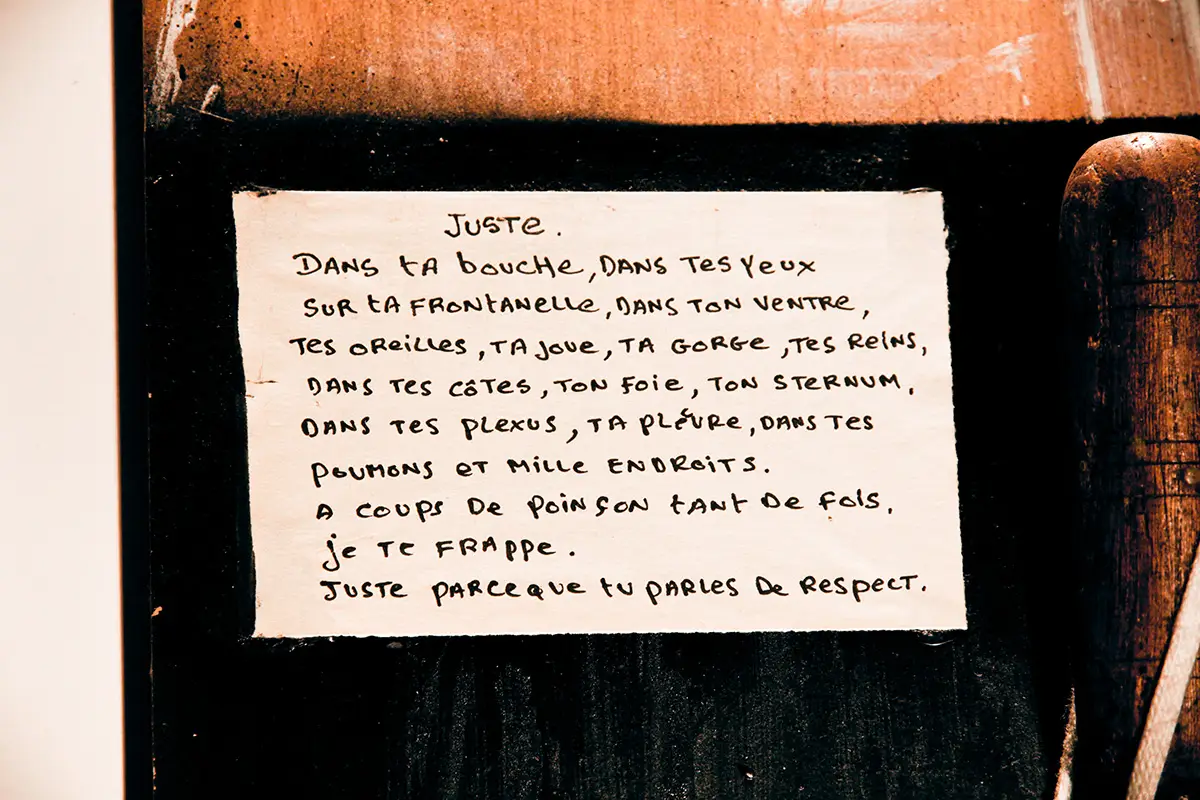 JUSTE.
DANS tA bouCHe, DANS TeS YeuX
SUR tA FRONtANeLLe, DANS TON VeNTRe,
TeS OReiLLeS, TA Joue, TA GORGe, TeS ReiNS,
DANS TeS CôTeS, TON Foie, TON STeRNUM,
DANS TeS pLeXUS, TA pLèVRe, DANS TeS
pouMONS eT MiLLe eNDROiTS.
A COUpS De poiNçON tANt De foiS,
je Te FRAppe.
JUSTe pARCeQue tu pARLeS De ReSpeCT.